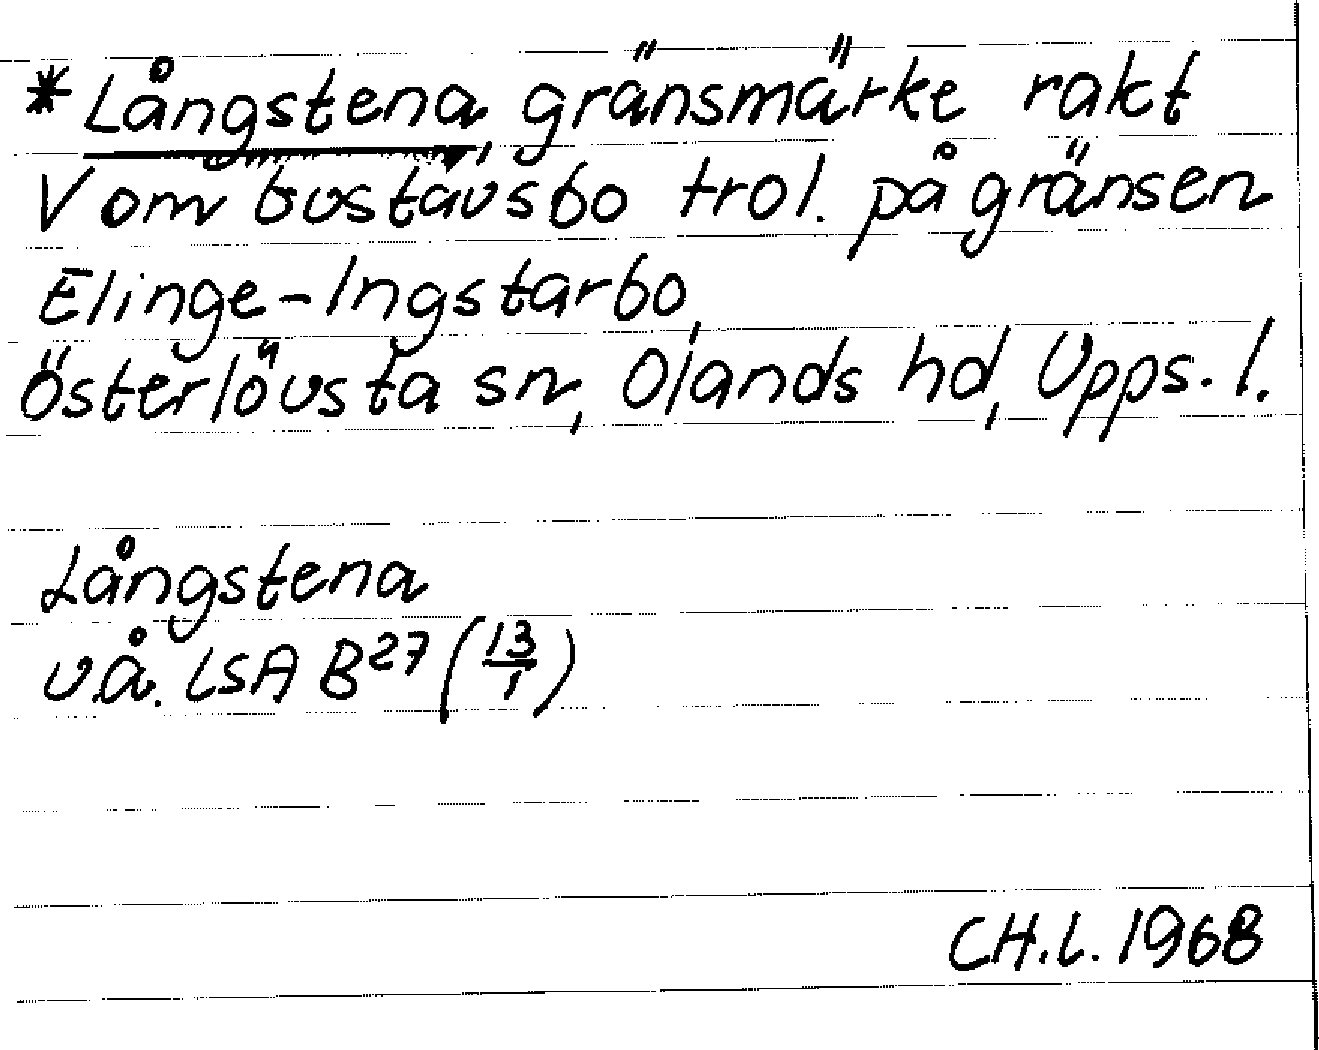 *Långstena, gränsmärke rakt
V om Gustavsbo trol. på gränsen
Elinge-Ingstarbo,
Österlövsta sn, Olands hd, Upps. l.
Långstena
u.å. LSA B27 (13/1)
CH.L. 1968